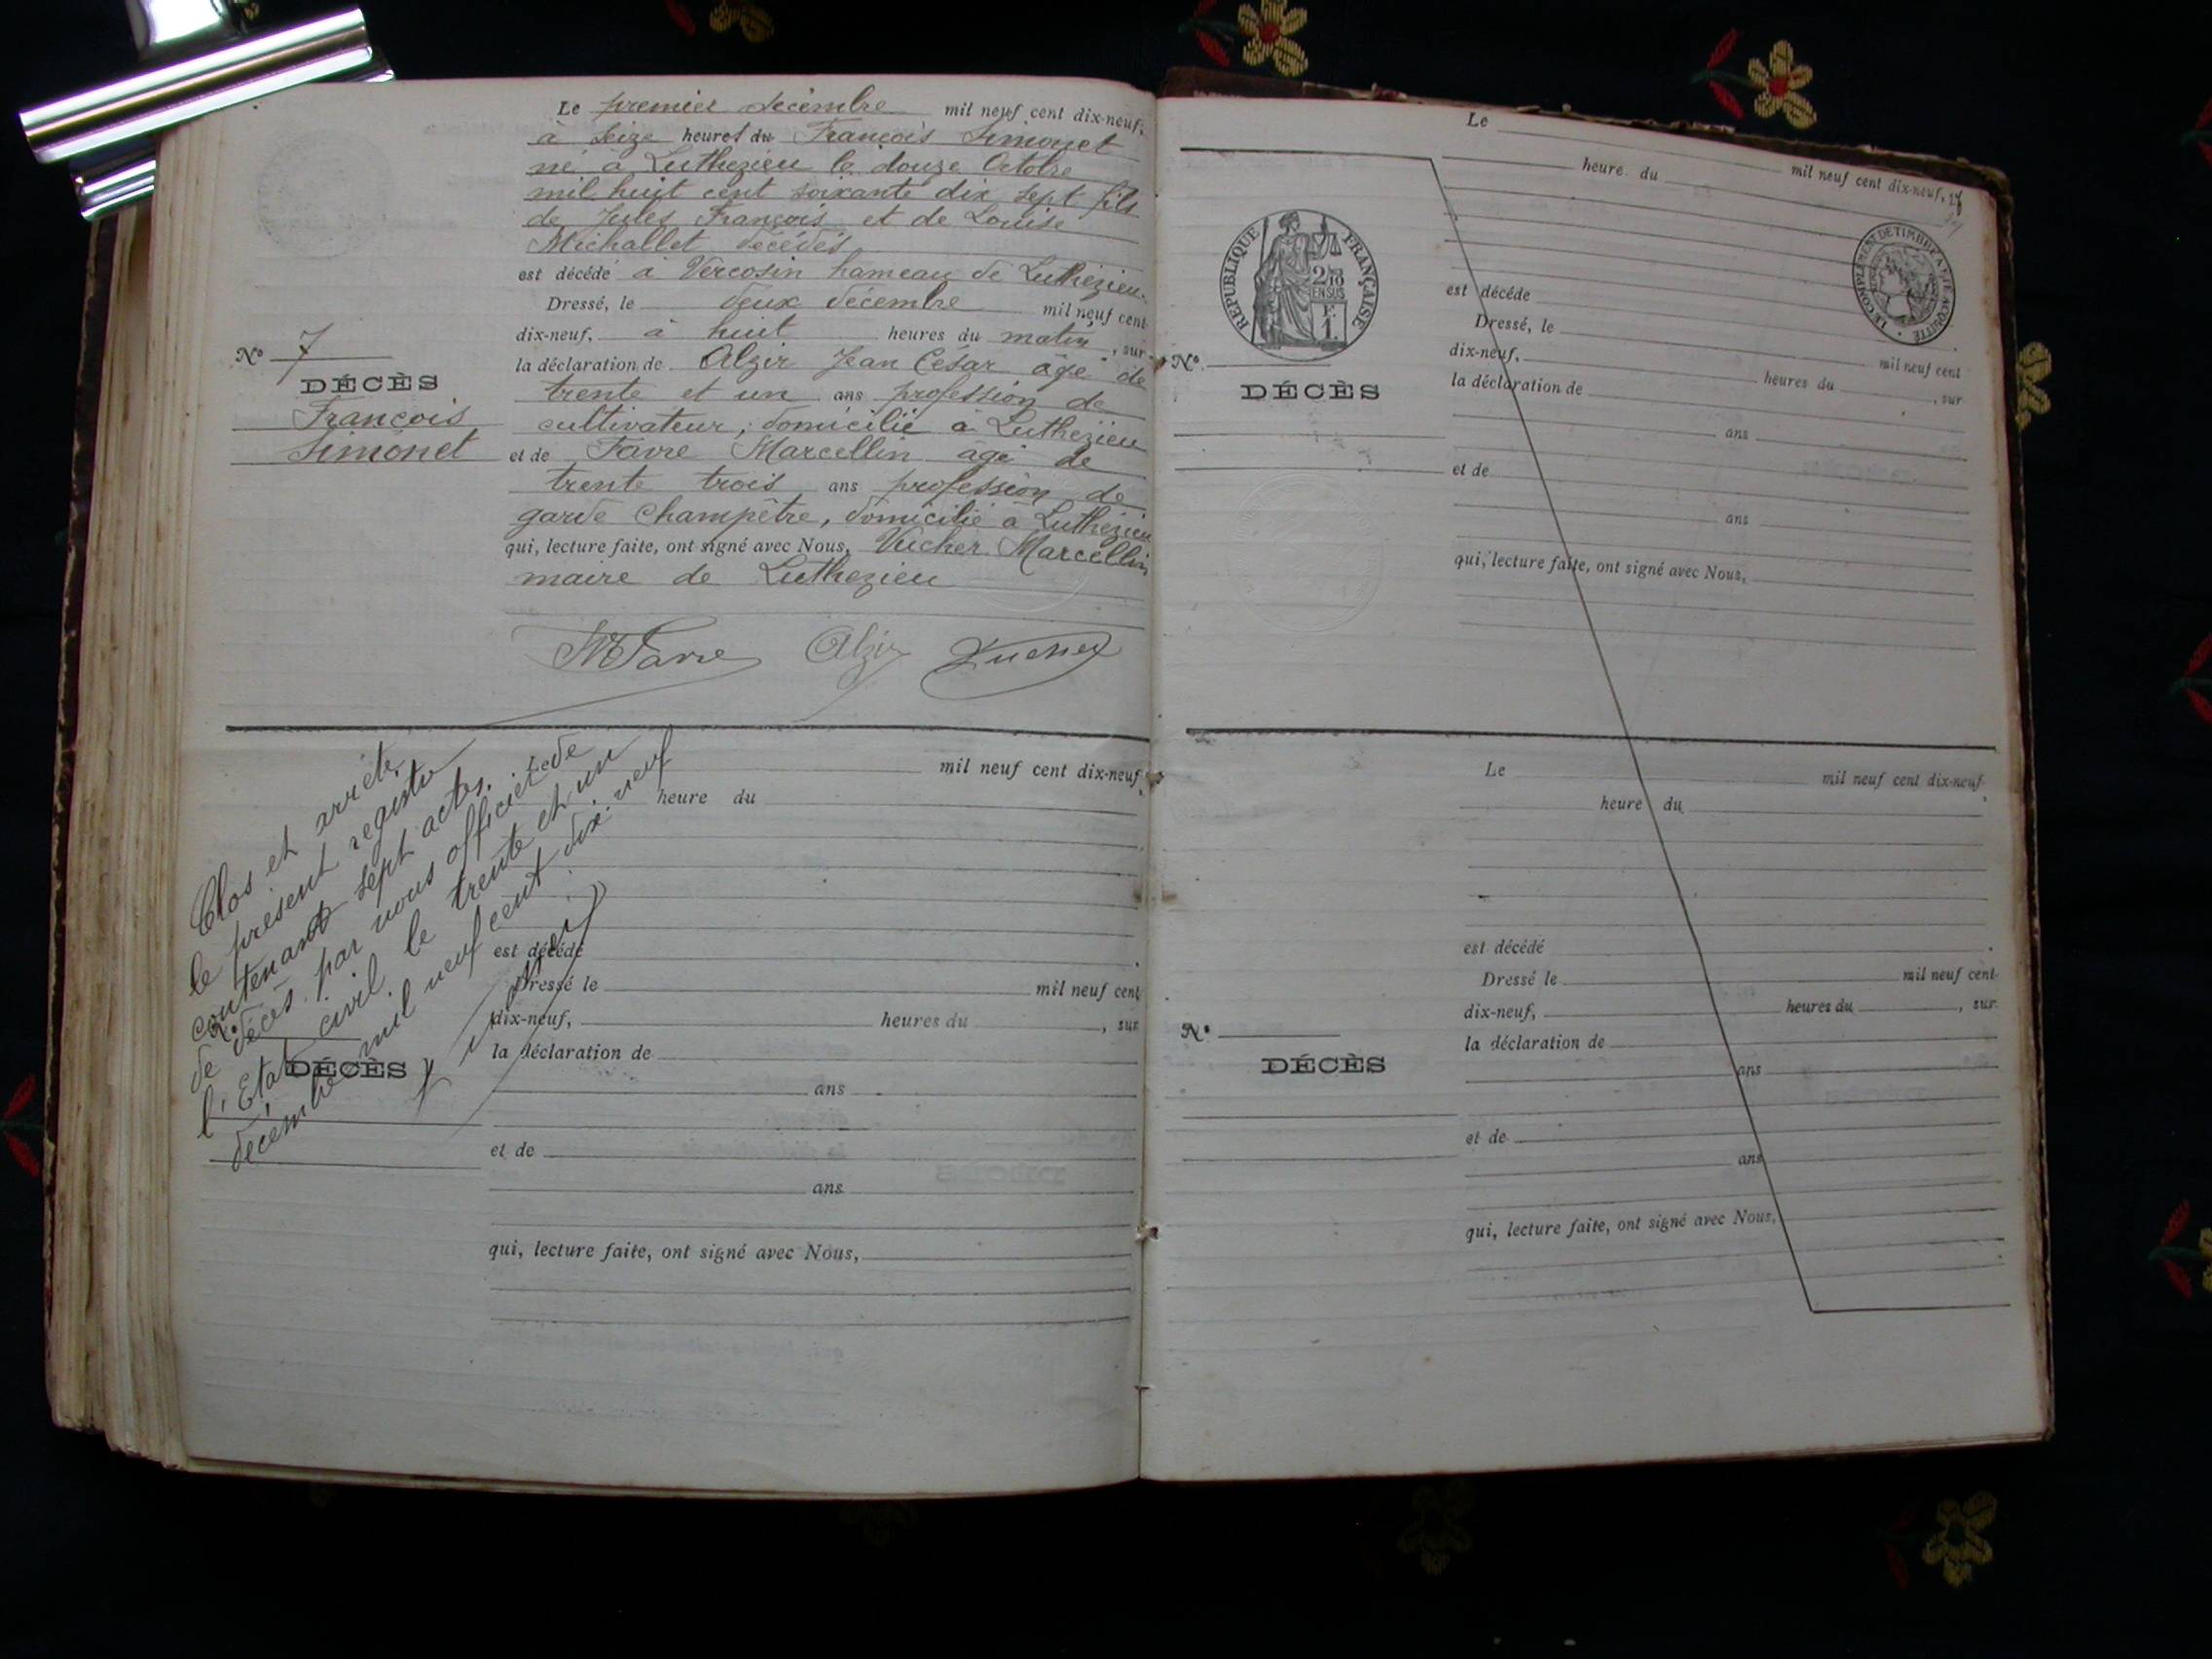 Le premier décembre mil neuf cent dix-neuf,
à seize heures du François Simonet
né à Luthezieu le douze Octobre
mil huit cent soixante dix sept fils
de Jules François et de Louise
Michallet décédés
est décédé à Vercosin hameau de Luthézieu.
Dressé, le deux décembre mil neuf cent
dix-neuf, à huit heures du matin, sur
la déclaration de Algir Jean César âgé de
trente et un ans profession de
cultivateur, domicilié à Luthezieu
et de Favre Marcellin âgé de
trente trois ans profession de
garde champêtre, domicilié à Luthézieu
qui, lecture faite, ont signé avec Nous, Vucher Marcellin
maire de Luthezieu
No 7
DÉCÈS
François
Simonet
MFavre Algir Vucher
Clos et arrêté
le présent registre
contenant sept actes
de décès par nous officier de
l'Etat civil le trente et un
décembre mil neuf cent dix neuf
Vucher
Le mil neuf cent dix-neuf,
heure du
est décédé
Dressé le mil neuf cent
dix-neuf, heures du , sur
la déclaration de
ans
et de
ans
qui, lecture faite, ont signé avec Nous,
No
DÉCÈS
Le mil neuf cent dix-neuf,
heure du
est décédé
Dressé, le mil neuf cent
dix-neuf, heures du , sur
la déclaration de
ans
et de
ans
qui, lecture faite, ont signé avec Nous,
RÉPUBLIQUE FRANÇAISE
2/10
EN SUS
F.
1.
LE COMPLÉMENT DE TIMBRE A ÉTÉ ACQUITTÉ
No
DÉCÈS
Le mil neuf cent dix-neuf,
heure du
est décédé
Dressé le mil neuf cent
dix-neuf, heures du , sur
la déclaration de
ans
et de
ans
qui, lecture faite, ont signé avec Nous,
No
DÉCÈS